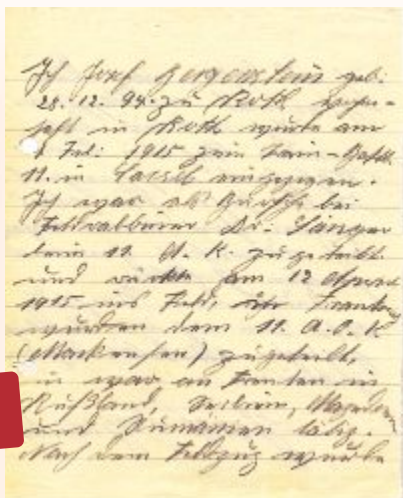 Ich Josef Gergenstein geb.
28. 12. 94 zu Roth wohn-
haft in Roth wurde am
Feb. 1915 zum Train-Batl.
11. in Cassel eingezogen.
Ich war als Bursche bei
Dr. Sänger
beim 11. A. K. zugeteilt
und rückte am 12
1915 ins Feld,
wurden dem 11. A. O. K
(Mackensen) zugeteilt,
war an Fronten in
Rußland, Serbien,
und Rumänien tätig.
Nach dem Feldzug wurde